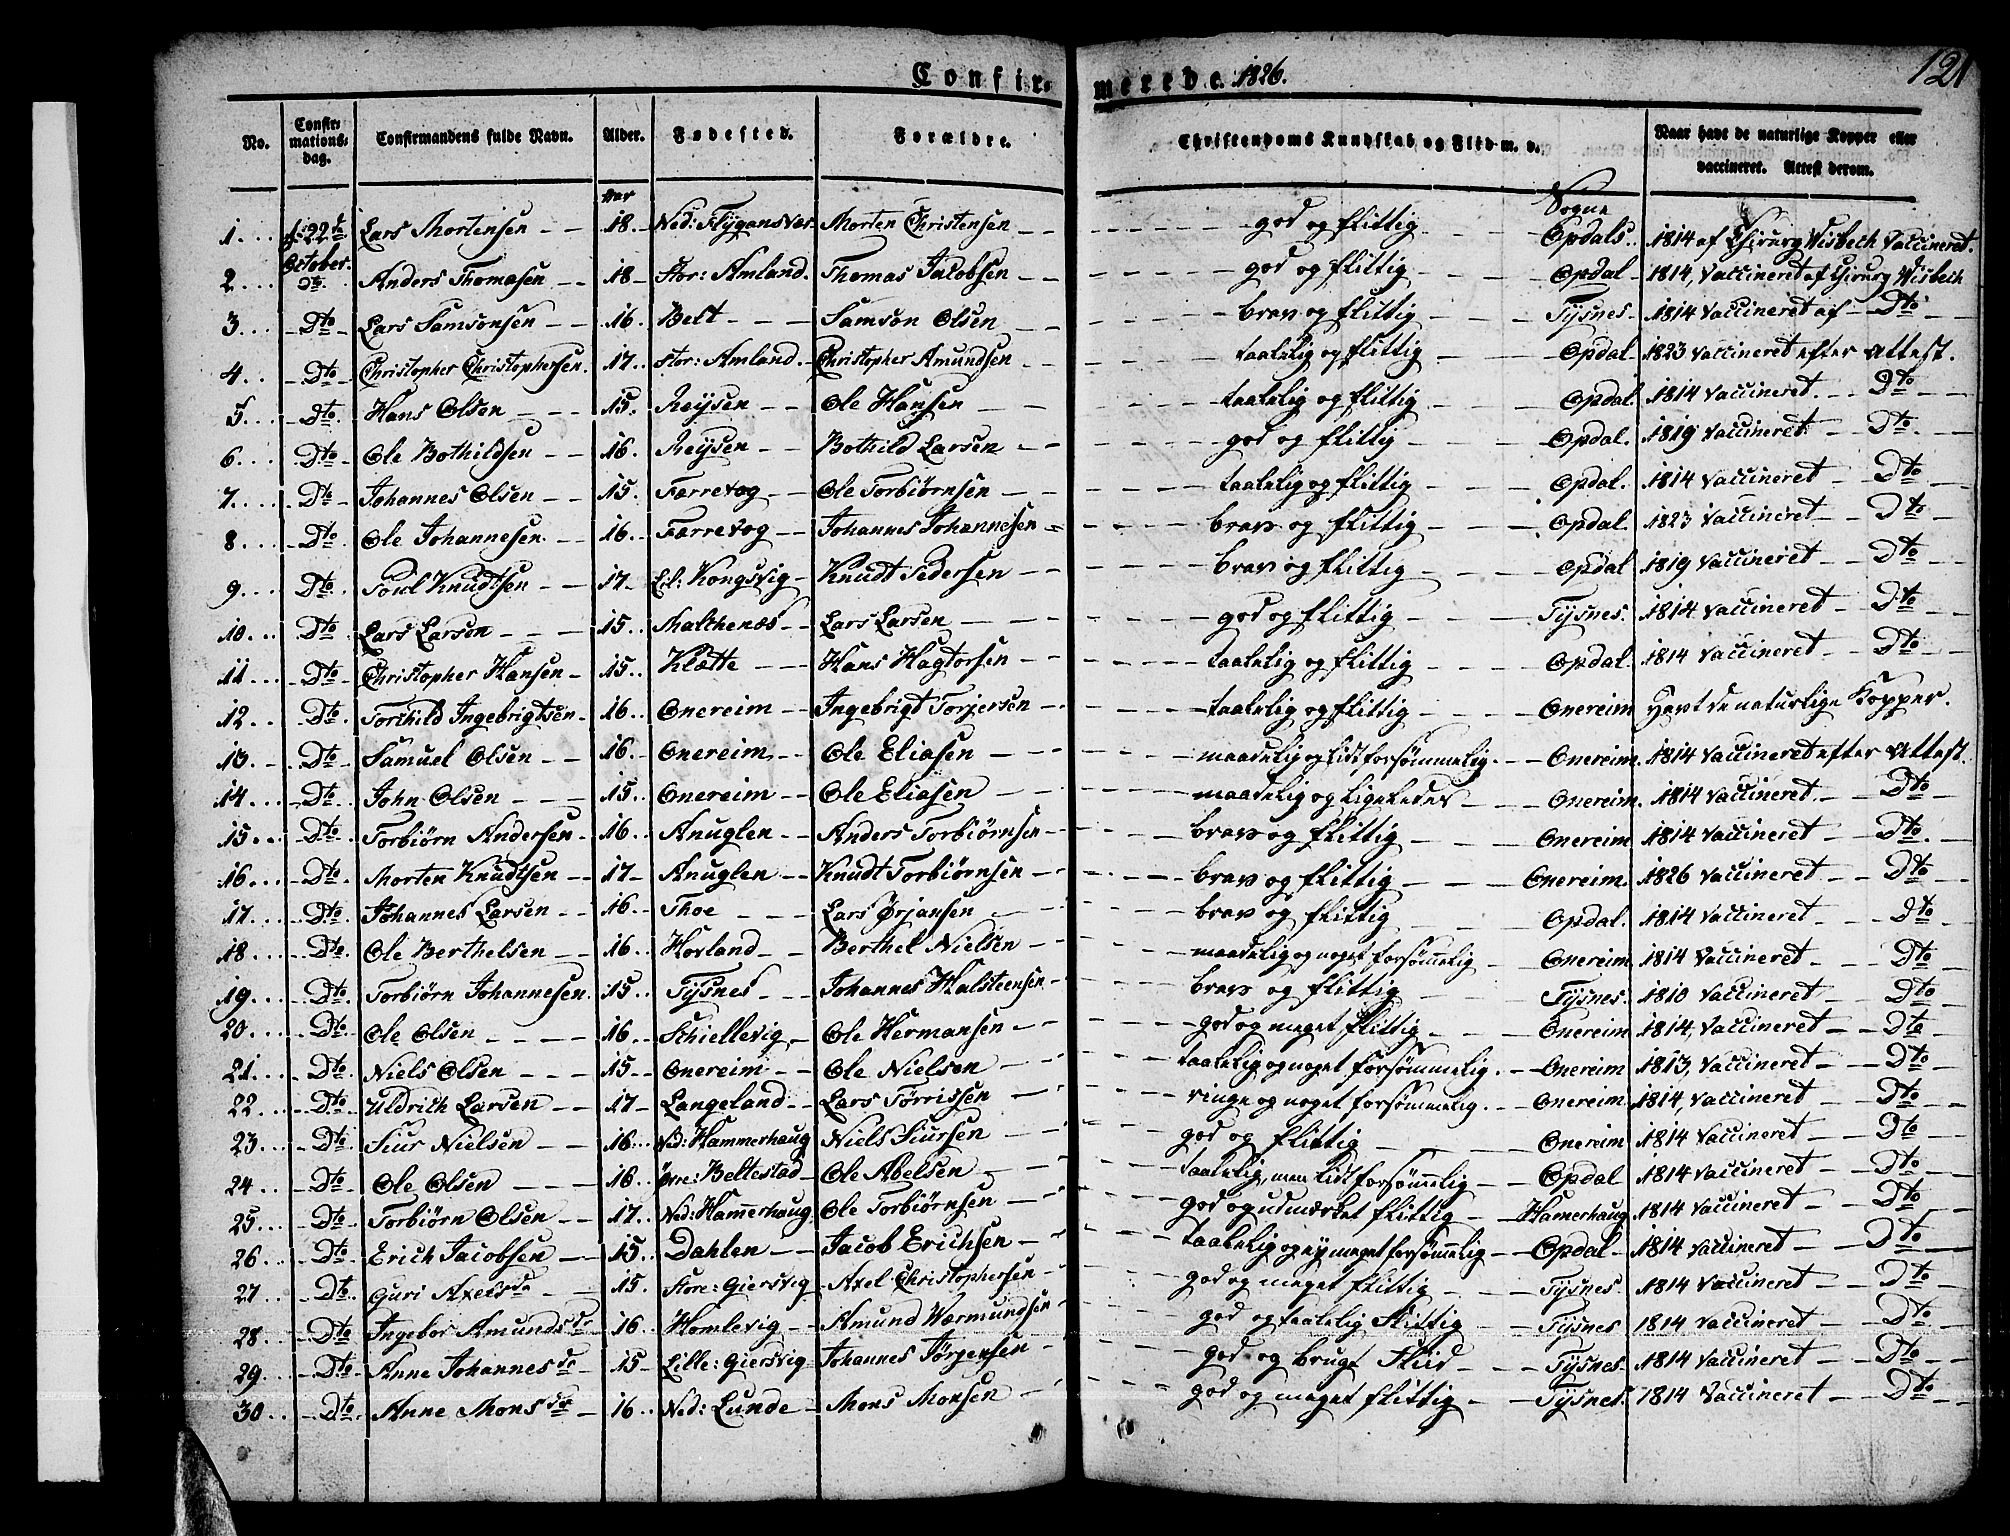 Confirmerede 1826. 121
No. Confirmationsdag. Confirmandens fulde Navn. Alder. Fødested. Forældre. Christendoms Kundskab og Flid m. v. Naar havt de naturlige Kopper eller vaccineret. Attest derom.
Aar Sogne
1... d: 22de October. Lars Mortensen -- 18. Ned: Flygansvær Morten Christensen -- god og flittig -- Opdals.. 1814 af Chirurg Wisbech Vaccineret.
2... Dto Anders Thomasen -- 18- Stor: Amland. Thomas Jacobsen -- god og flittig -- Opdal - 1814, Vaccineret af Chirurg Wisbech
3... Dto Lars Samsonsen -- 16. Belt --- Samson Olsen -- brav og flittig -- Tysnes - 1814 Vaccineret af - Dto
4.. Dto Christopher Christophersen. 17. Stor: Amland. Christopher Amundsen -- taalelig og flittig -- Opdal 1823 Vaccineret efter Attest.
5... Dto. Hans Olsen --- 15. Reysen -- Ole Hansen -- taalelig og flittig -- Opdal. 1814 Vaccineret. -- Dto
6... Dto Ole Bothildsen -- 16. Reysen -- Bothild Larsen -- god og flittig -- Opdal. 1819 Vaccineret -- Dto
7... Dto Johannes Olsen -- 15. Færrevog -- Ole Torbiørnsen -- taalelig og flittig -- Opdal. 1814 Vaccineret -- Dto
8... Dto Ole Johannesen. -- 16.. Færrevog -- Johannes Johannesen -- brav og flittig -- Opdal. 1823 Vaccineret -- Dto
9... Dto Poul Knudtsen -- 17- Lil: Kongsvig - Knudt Pedersen -- brav og flittig -- Opdal 1819 Vaccineret -- Dto
10... Dto Lars Larsen --- 15.. Malkenæs -- Lars Larsen -- god og flittig -- Tysnes. 1814 Vaccineret -- Dto
11... Dto Christopher Hansen - 15.. Klætte -- Hans Hagtorsen -- taalelig og flittig -- Opdal 1814 Vaccineret -- Dto
12.. Dto Torchild Ingebrigtsen. 16.. Onereim -- Ingebrigt Torjersen -- taalelig og flittig -- Onereim Havt de naturlige Kopper.
13. - Dto Samuel Olsen -- 16. Onereim -- Ole Eliasen -- maadelig og lidt forsømmelig. -- Onereim. 1814 Vaccineret efter Attest.
14... Dto John Olsen --- 15.. Onereim -- Ole Eliasen -- maadelig og ligeledes -- Onereim. 1814 Vaccineret. -- Dto
15... Dto Torbiørn Andersen - 16.. Anuglen -- Anders Torbiørnsen -- brav og flittig -- Onereim 1814 Vaccineret -- Dto
16... Dto. Morten Knudtsen -- 17- Anuglen -- Knudt Torbiørnsen -- brav og flittig -- Onereim. 1826 Vaccineret -- Dto
17... Dto Johannes Larsen -- 16.. Thoe --- Lars Ørjansen -- brav og flittig Opdal. 1814 Vaccineret -- Dto
18.. Dto Ole Berthelsen -- 16 Hovland -- Berthel Nielsen -- maadelig og noget forsømmelig -- Onereim 1814 Vaccineret -- Dto
19... Dto Torbiørn Johannesen. 15.. Tysnes --- Johannes Halsteensen - brav og flittig -- Tysnes. 1810 Vaccineret -- Dto
20... Dto Ole Olsen --- 16.. Skiellevig - Ole Hermansen -- god og meget flittig -- Onereim 1814, Vaccineret -- Dto
21... Dto Niels Olsen -- 15- Onereim -- Ole Nielsen -- taalelig og noget forsømmelig. -- Onereim 1813, Vaccineret -- Dto
22... Dto Uldrich Larsen -- 17- Langeland -- Lars Tørrissen -- ringe og noget forsømmelig. -- Onereim 1814, Vaccineret -- Dto
23... Dto Siur Nielsen -- 16... Ned: Hammerhaug Niels Siursen -- god og flittig -- Onereim 1814 Vaccineret -- Dto
24... Dto Ole Olsen --- 16.. Øvre: Beltestad - Ole Abelsen -- taalelig, men lidt forsømmelig - Opdal 1814 Vaccineret -- Dto
25... Dto Torbiørn Olsen -- 17. Ned: Hamerhaug. Ole Torbiørnsen -- god og udmærket flittig -- Hamerhaug 1814 Vaccineret -- Dto
26... Dto Erich Jacobsen -- 15.. Dahlen -- Jacob Erichsen -- taalelig og ey meget forsømmelig -- Opdal - 1814 Vaccineret -- Dto
27... Dto. Guri Axelsdr -- 15.. Store: Giersvig - Axel Christophersen -- god og meget flittig -- Tysnes. 1814 Vaccineret -- Dto
28.. Dto Ingebor Amundsdr 16.. Homlevig -- Amund Wærmundsen -- god og taalelig flittig -- Tysnes 1814 Vaccineret -- Dto
29... Dto. Anne Johannesdr - 15- Lille: Giersvig - Johannes Jørgensen - god og bruget Fliid -- Tysnes. 1814 Vaccineret -- Dto
30... Dto Anne Monsdr - 16.. Ned: Lunde - Mons Monsen -- god og meget flittig -- Tysnes. 1814 Vaccineret -- Dto